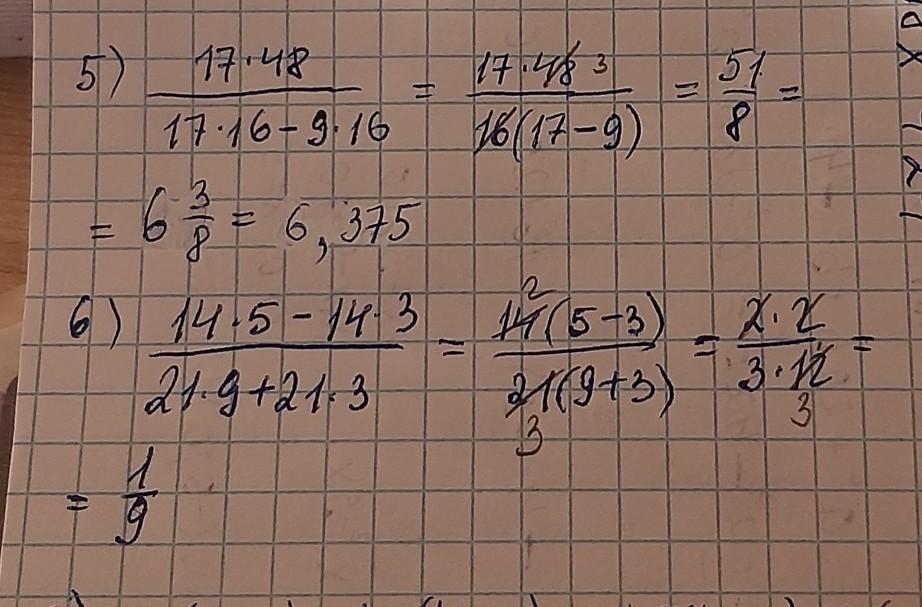 5) 17·48 / 17·16-9·16 = 17·48 3 / 16(17-9) = 51/8 =
= 6 3/8 = 6,375
6) 14·5-14·3 / 21·9+21·3 = 2 14(5-3) / 21(9+3) 3 = 2·2 / 3·12 3 =
= 1/9